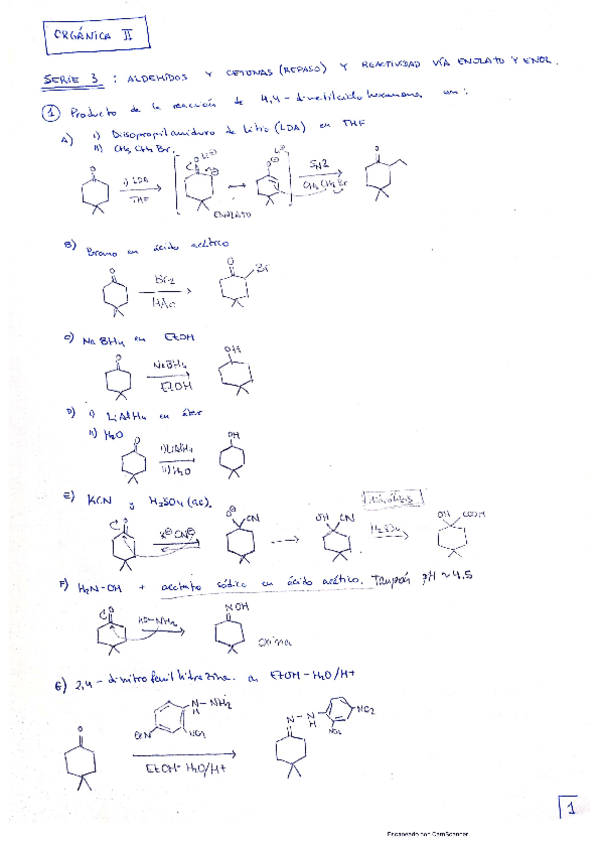 ORGÁNICA II
SERIE 3 : ALDEHÍDOS Y CETONAS (REPASO) Y REACTIVIDAD VÍA ENOLATO Y ENOL.
① Producto de la reacción de 4,4-dimetilciclohexanona con:
A) i) Diisopropilamiduro de litio (LDA) en THF
ii) CH3CH2Br.
i) LDA
THF
Li⊕
Li⊕
SN2
CH3CH2Br
ENOLATO
B) Bromo en ácido acético
Br2
HAc
Br
C) NaBH4 en EtOH
NaBH4
EtOH
OH
D) i) LiAlH4 en éter
ii) H2O
i) LiAlH4
ii) H2O
OH
E) KCN y H2SO4 (ac).
CN
OH CN
H2SO4
OH COOH
F) H2N-OH + acetato sódico en ácido acético. Tampón pH ~ 4,5
HO-NH2
NOH
oxima
G) 2,4-dinitrofenilhidrazina en EtOH-H2O/H+
N-NH2
H
O2N NO2
EtOH-H2O/H+
N-N
H
NO2
NO2
1
Escaneado con CamScanner